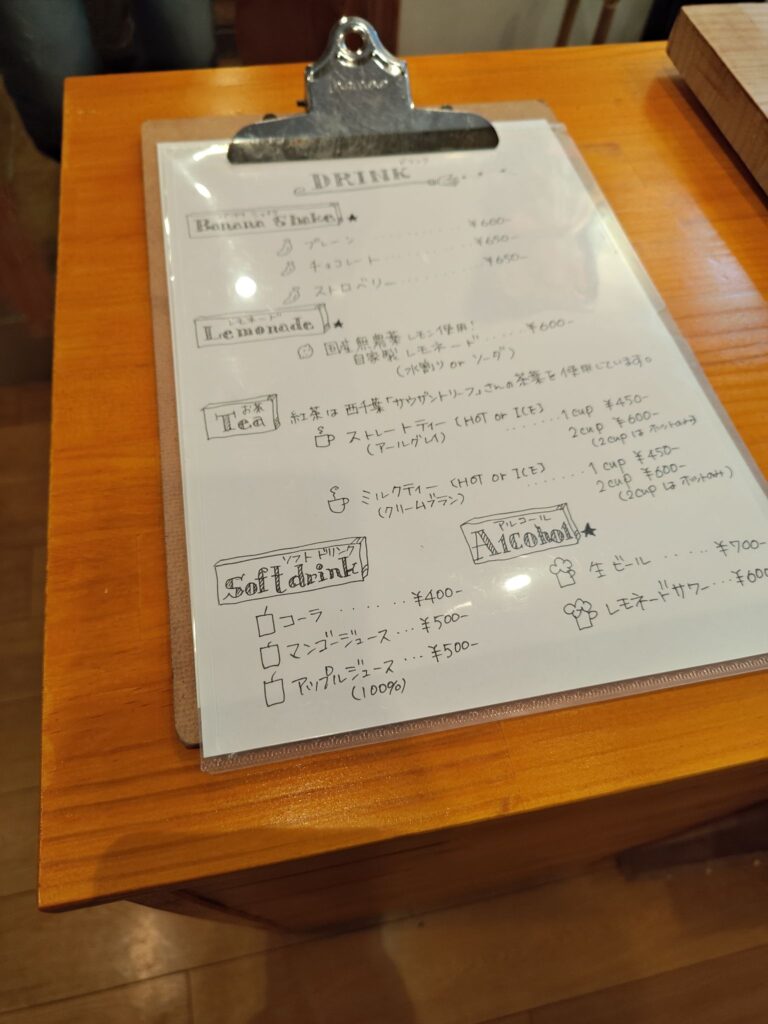 ドリンク
DRINK
バナナシェイク
Banana Shake ★
プレーン ........ ¥600-
チョコレート ........ ¥650-
ストロベリー ........ ¥650-
レモネード
Lemonade ★
国産無農薬レモン使用!
自家製レモネード ..... ¥600-
(水割り or ソーダ)
お茶
Tea
紅茶は西千葉「サウザンドリーフ」さんの茶葉を使用しています。
ストレートティー (HOT or ICE) ........ 1 cup ¥450-
(アールグレイ) 2 cup ¥600-
(2 cup は ホットのみ)
ミルクティー (HOT or ICE) ........ 1 cup ¥450-
(クリームブラン) 2 cup ¥600-
(2 cup は ホットのみ)
ソフトドリンク
Soft drink
コーラ ...... ¥400-
マンゴージュース ... ¥500-
アップルジュース ... ¥500-
(100%)
アルコール
Alcohol ★
生ビール ...... ¥700-
レモネードサワー ... ¥600